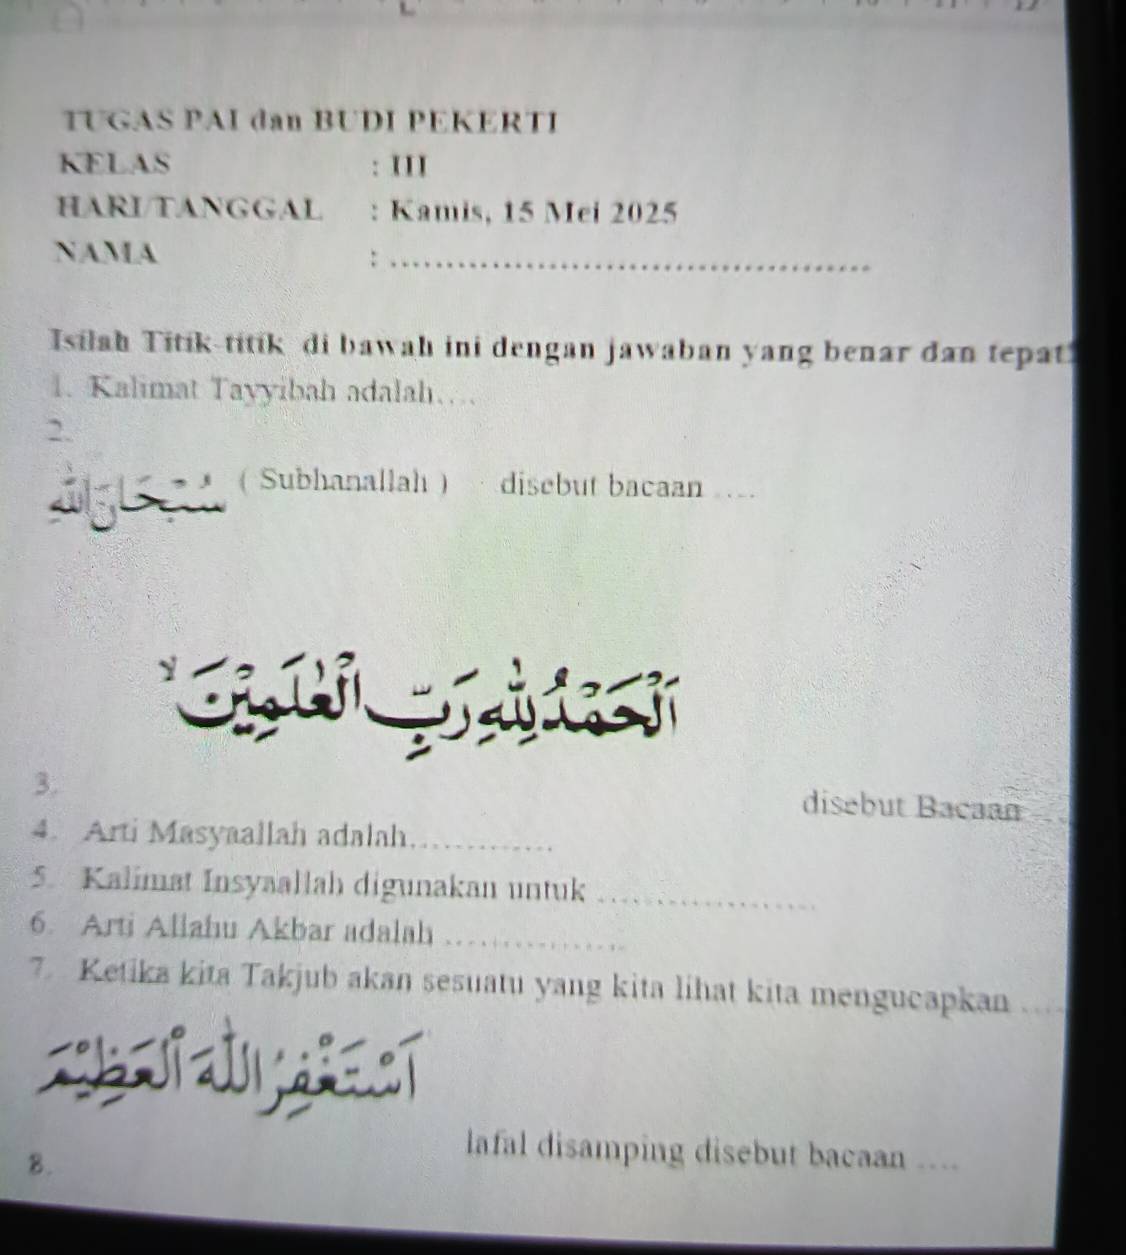 TUGAS PAI dan BUDI PEKERTI
KELAS : III
HARI/TANGGAL : Kamis, 15 Mei 2025
NAMA : ................................................
Isilah Titik-titik di bawah ini dengan jawaban yang benar dan tepat!
1. Kalimat Tayyibah adalah....
2.
سُبْحَانَ اللّٰهِ ( Subhanallah ) disebut bacaan ....
اَلْحَمْدُ لِلّٰهِ رَبِّ الْعٰلَمِيْنَۙ
3. disebut Bacaan ....
4. Arti Masyaallah adalah..............
5. Kalimat Insyaallah digunakan untuk ......................
6. Arti Allahu Akbar adalah ...................
7. Ketika kita Takjub akan sesuatu yang kita lihat kita mengucapkan ....
اَسْتَغْفِرُ اللّٰهَ الْعَظِيْمَ
8. lafal disamping disebut bacaan ....